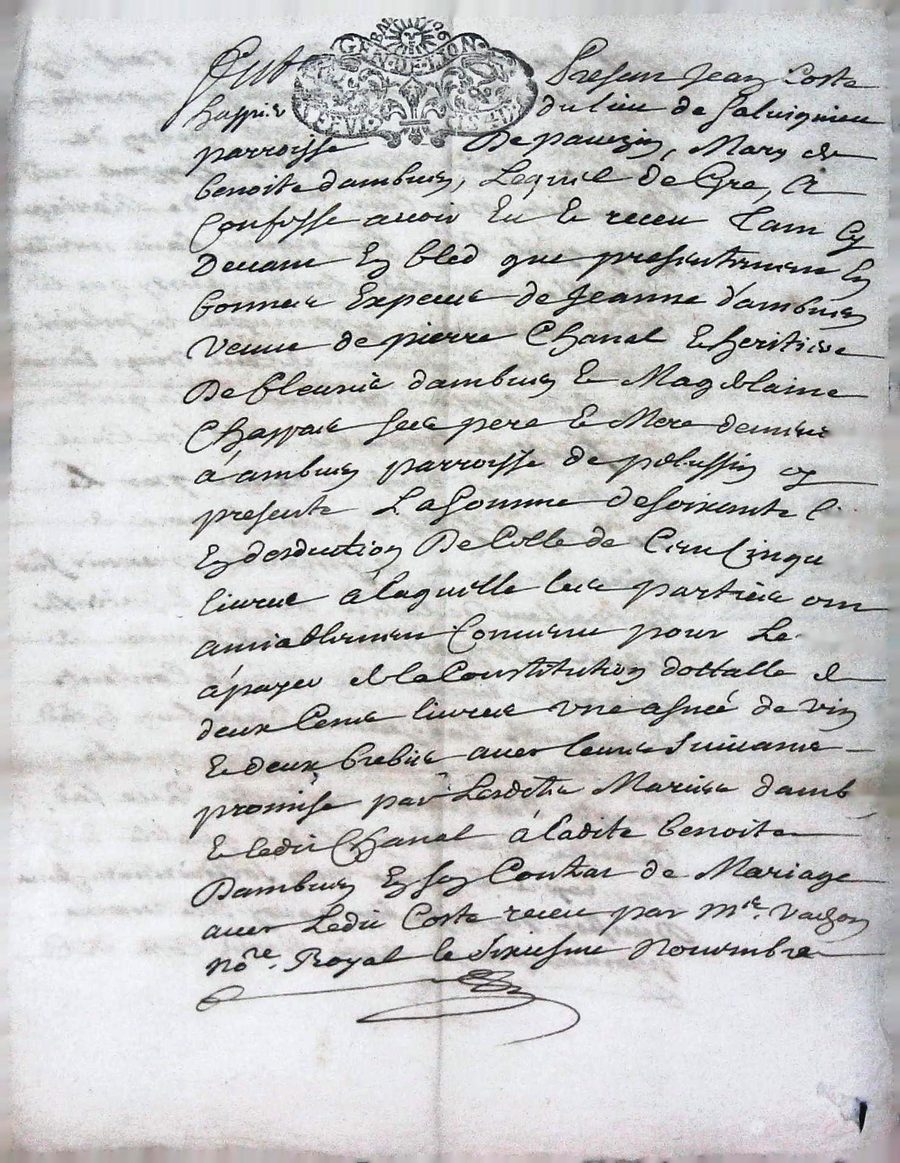 GEN. DE LION
fut present Jean Coste
du lieu de Salvignieu
parroisse De pavezin, Mary de
benoite dambuen, Lequel de Gre, A
Confesse avoir Eu Et receu Tam Cy
Devant En bled que presentement En
bonnes Expeces de Jeanne dambuen
veuve de pierre Chanal Et heritiere
De fleurie dambuen Et Magdelaine
Chappuis ses pere Et Mere
à ambuen parroisse de pelussin cy
presente La somme de soixante l
En desduction De Celle de Cent Cinqu
livres à laquelle les parties ont
amiablement Convenu pour Le
à payer de la Constitution dottalle de
deux Cents livres une asnée de vin
Et deux brebis avec leurs suivants
promise par Lesdits Mariés damb
Et ledit Chanal à ladite benoite
Dambuen En son Contrat de Mariage
avec Ledit Coste receu par Mre. Vachon
nore. Royal le sixiesme Novembre